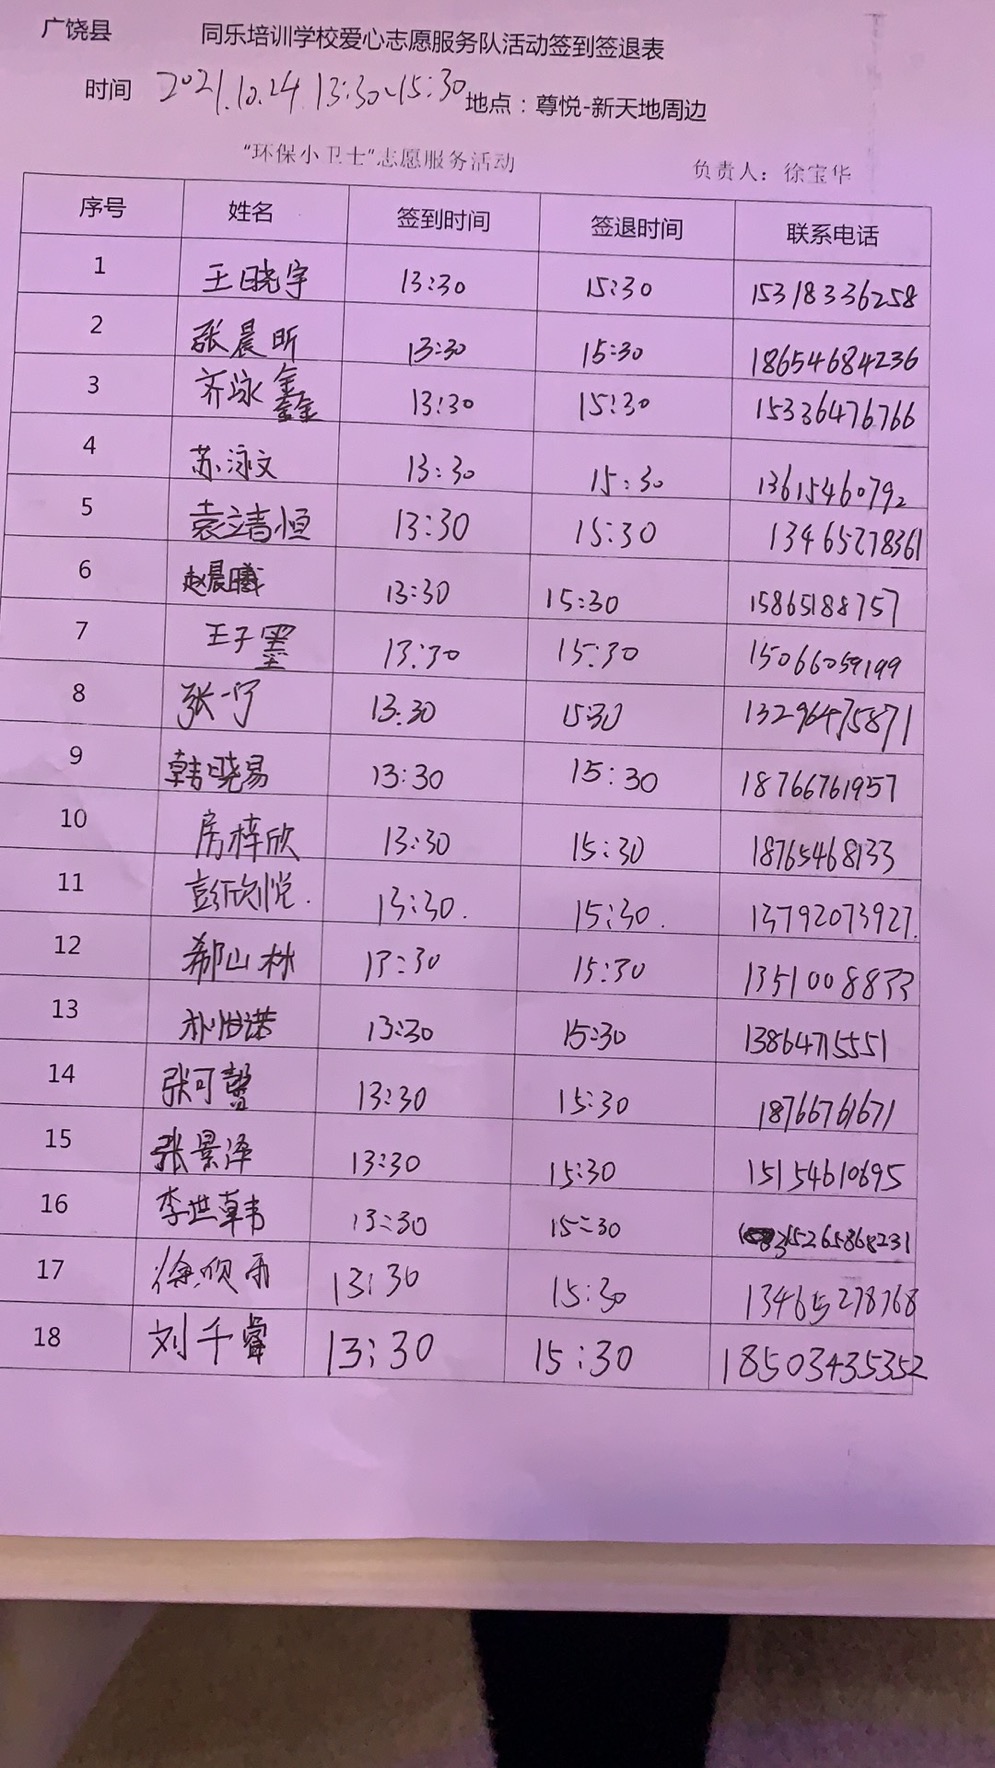 广饶县 同乐培训学校爱心志愿服务队活动签到签退表
时间 2021.10.24 13:30~15:30 地点：尊悦-新天地周边
“环保小卫士”志愿服务活动 负责人：徐宝华
序号 姓名 签到时间 签退时间 联系电话
1 王晓宇 13:30 15:30 15318336258
2 张晨昕 13:30 15:30 18654684236
3 齐泳鑫 13:30 15:30 15336476766
4 苏泳文 13:30 15:30 13615460792
5 袁立青恒 13:30 15:30 13465278361
6 赵晨曦 13:30 15:30 15865188757
7 王子墨 13:30 15:30 15066059199
8 张一 13.30 15:30 13296475871
9 韩晓易 13:30 15:30 18766761957
10 房梓欣 13:30 15:30 18765468133
11 彭欣悦. 13:30. 15:30. 13792073927.
12 郗山林 13:30 15:30 1351008833
13 13:30 15:30 13864715551
14 张可馨 13:30 15:30 18766761671
15 张景泽 13:30 15:30 15154610695
16 李世韩 13:30 15:30 15265868231
17 徐欣雨 13:30 15:30 13465278768
18 刘千睿 13:30 15:30 18503435352